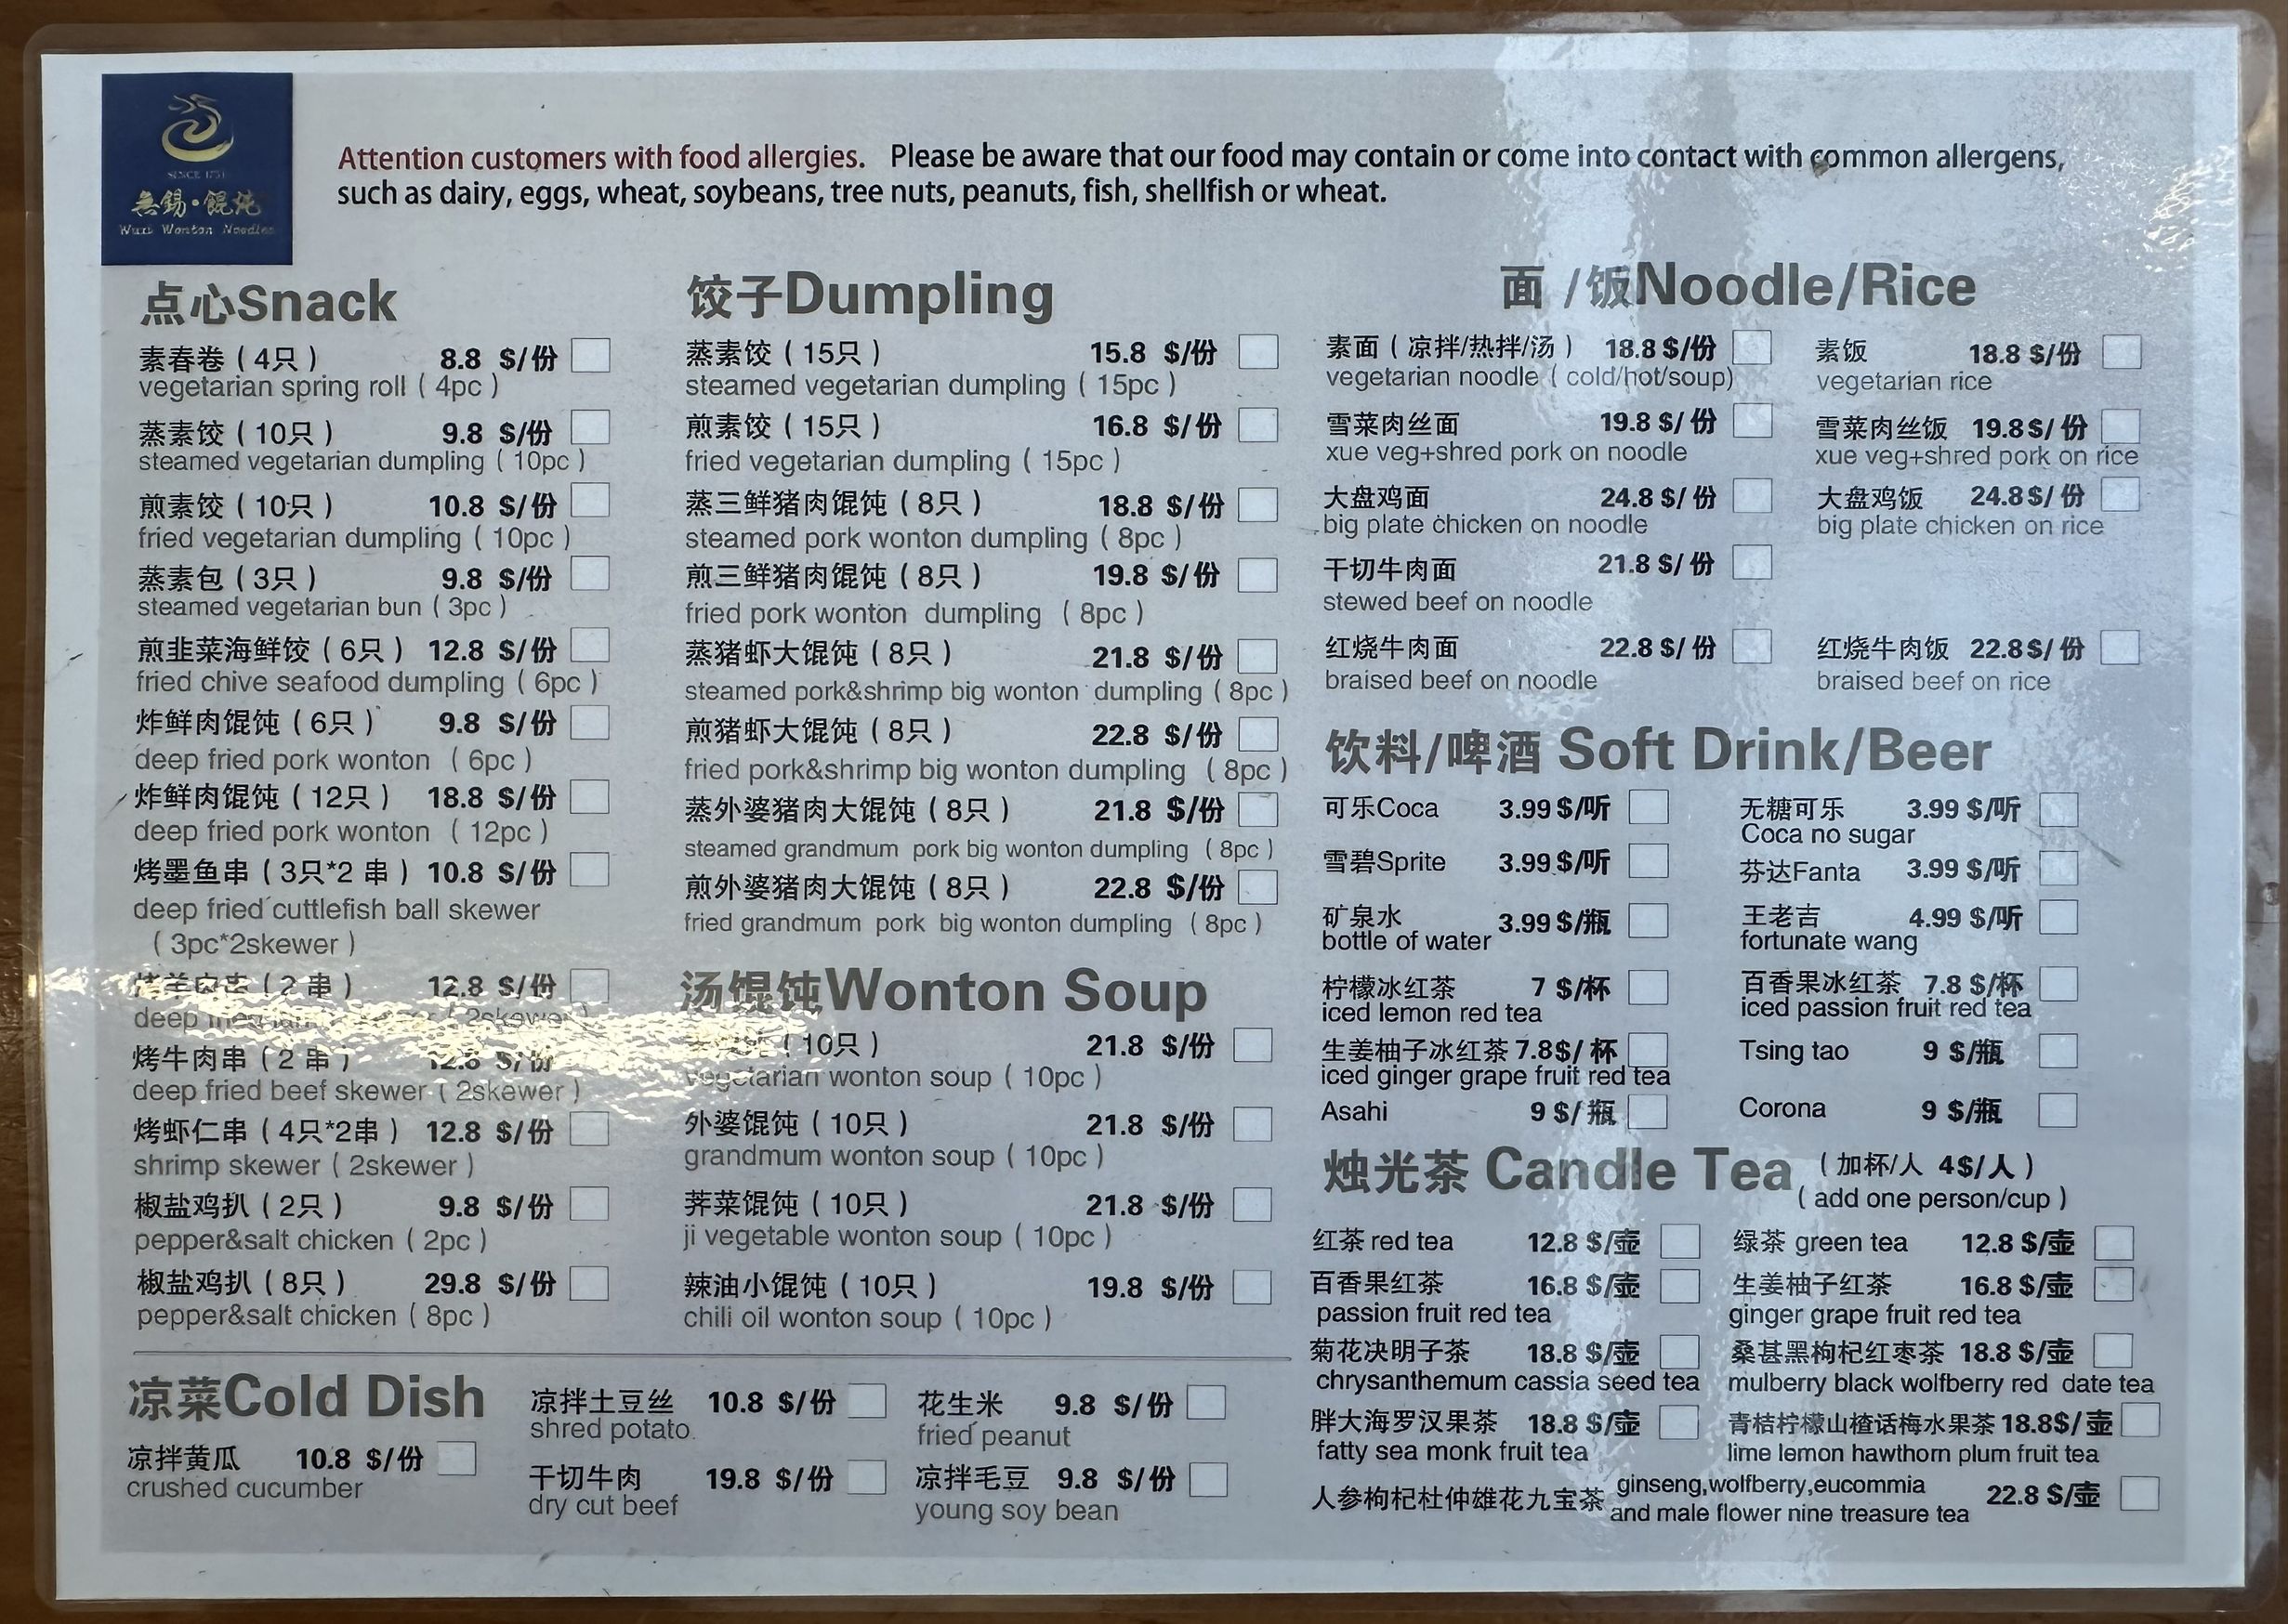 SINCE 1751
無錫·餛飩
Wuxi Wonton Noodles
Attention customers with food allergies. Please be aware that our food may contain or come into contact with common allergens,
such as dairy, eggs, wheat, soybeans, tree nuts, peanuts, fish, shellfish or wheat.
点心Snack
素春卷 ( 4只 ) 8.8 $/份
vegetarian spring roll ( 4pc )
蒸素饺 ( 10只 ) 9.8 $/份
steamed vegetarian dumpling ( 10pc )
煎素饺 ( 10只 ) 10.8 $/份
fried vegetarian dumpling ( 10pc )
蒸素包 ( 3只 ) 9.8 $/份
steamed vegetarian bun ( 3pc )
煎韭菜海鲜饺 ( 6只 ) 12.8 $/份
fried chive seafood dumpling ( 6pc )
炸鲜肉馄饨 ( 6只 ) 9.8 $/份
deep fried pork wonton ( 6pc )
炸鲜肉馄饨 ( 12只 ) 18.8 $/份
deep fried pork wonton ( 12pc )
烤墨鱼串 ( 3只*2 串 ) 10.8 $/份
deep fried cuttlefish ball skewer
( 3pc*2skewer )
烤羊肉串 ( 2 串 ) 12.8 $/份
deep ( 2skewer )
烤牛肉串 ( 2 串 ) 12.8 $/份
deep fried beef skewer ( 2skewer )
烤虾仁串 ( 4只*2串 ) 12.8 $/份
shrimp skewer ( 2skewer )
椒盐鸡扒 ( 2只 ) 9.8 $/份
pepper&salt chicken ( 2pc )
椒盐鸡扒 ( 8只 ) 29.8 $/份
pepper&salt chicken ( 8pc )
饺子Dumpling
蒸素饺 ( 15只 ) 15.8 $/份
steamed vegetarian dumpling ( 15pc )
煎素饺 ( 15只 ) 16.8 $/份
fried vegetarian dumpling ( 15pc )
蒸三鲜猪肉馄饨 ( 8只 ) 18.8 $/份
steamed pork wonton dumpling ( 8pc )
煎三鲜猪肉馄饨 ( 8只 ) 19.8 $/份
fried pork wonton dumpling ( 8pc )
蒸猪虾大馄饨 ( 8只 ) 21.8 $/份
steamed pork&shrimp big wonton dumpling ( 8pc )
煎猪虾大馄饨 ( 8只 ) 22.8 $/份
fried pork&shrimp big wonton dumpling ( 8pc )
蒸外婆猪肉大馄饨 ( 8只 ) 21.8 $/份
steamed grandmum pork big wonton dumpling ( 8pc )
煎外婆猪肉大馄饨 ( 8只 ) 22.8 $/份
fried grandmum pork big wonton dumpling ( 8pc )
汤馄饨Wonton Soup
( 10只 ) 21.8 $/份
vegetarian wonton soup ( 10pc )
外婆馄饨 ( 10只 ) 21.8 $/份
grandmum wonton soup ( 10pc )
荠菜馄饨 ( 10只 ) 21.8 $/份
ji vegetable wonton soup ( 10pc )
辣油小馄饨 ( 10只 ) 19.8 $/份
chili oil wonton soup ( 10pc )
凉菜Cold Dish
凉拌黄瓜 10.8 $/份
crushed cucumber
凉拌土豆丝 10.8 $/份
shred potato
干切牛肉 19.8 $/份
dry cut beef
花生米 9.8 $/份
fried peanut
凉拌毛豆 9.8 $/份
young soy bean
面 /饭Noodle/Rice
素面 ( 凉拌/热拌/汤 ) 18.8 $/份
vegetarian noodle ( cold/hot/soup)
素饭 18.8 $/份
vegetarian rice
雪菜肉丝面 19.8 $/ 份
xue veg+shred pork on noodle
雪菜肉丝饭 19.8$/ 份
xue veg+shred pork on rice
大盘鸡面 24.8 $/ 份
big plate chicken on noodle
大盘鸡饭 24.8$/ 份
big plate chicken on rice
干切牛肉面 21.8 $/ 份
stewed beef on noodle
红烧牛肉面 22.8 $/ 份
braised beef on noodle
红烧牛肉饭 22.8$/ 份
braised beef on rice
饮料/啤酒 Soft Drink/Beer
可乐Coca 3.99 $/听
无糖可乐 3.99 $/听
Coca no sugar
雪碧Sprite 3.99 $/听
芬达Fanta 3.99 $/听
矿泉水 3.99 $/瓶
bottle of water
王老吉 4.99 $/听
fortunate wang
柠檬冰红茶 7 $/杯
iced lemon red tea
百香果冰红茶 7.8 $/杯
iced passion fruit red tea
生姜柚子冰红茶 7.8$/ 杯
iced ginger grape fruit red tea
Tsing tao 9 $/瓶
Asahi 9 $/ 瓶
Corona 9 $/瓶
烛光茶 Candle Tea ( 加杯/人 4$/人 )
( add one person/cup )
红茶 red tea 12.8 $/壶
绿茶 green tea 12.8 $/壶
百香果红茶 16.8 $/壶
passion fruit red tea
生姜柚子红茶 16.8 $/壶
ginger grape fruit red tea
菊花决明子茶 18.8 $/壶
chrysanthemum cassia seed tea
桑葚黑枸杞红枣茶 18.8 $/壶
mulberry black wolfberry red date tea
胖大海罗汉果茶 18.8 $/壶
fatty sea monk fruit tea
青桔柠檬山楂话梅水果茶 18.8$/ 壶
lime lemon hawthorn plum fruit tea
人参枸杞杜仲雄花九宝茶 ginseng,wolfberry,eucommia
and male flower nine treasure tea 22.8 $/壶